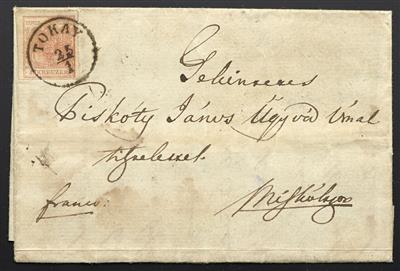 TOKAY
25/1
KREUZER
Piskóty János Ügyvéd Úrnal
tisztelettel
franco:
Miskólczon